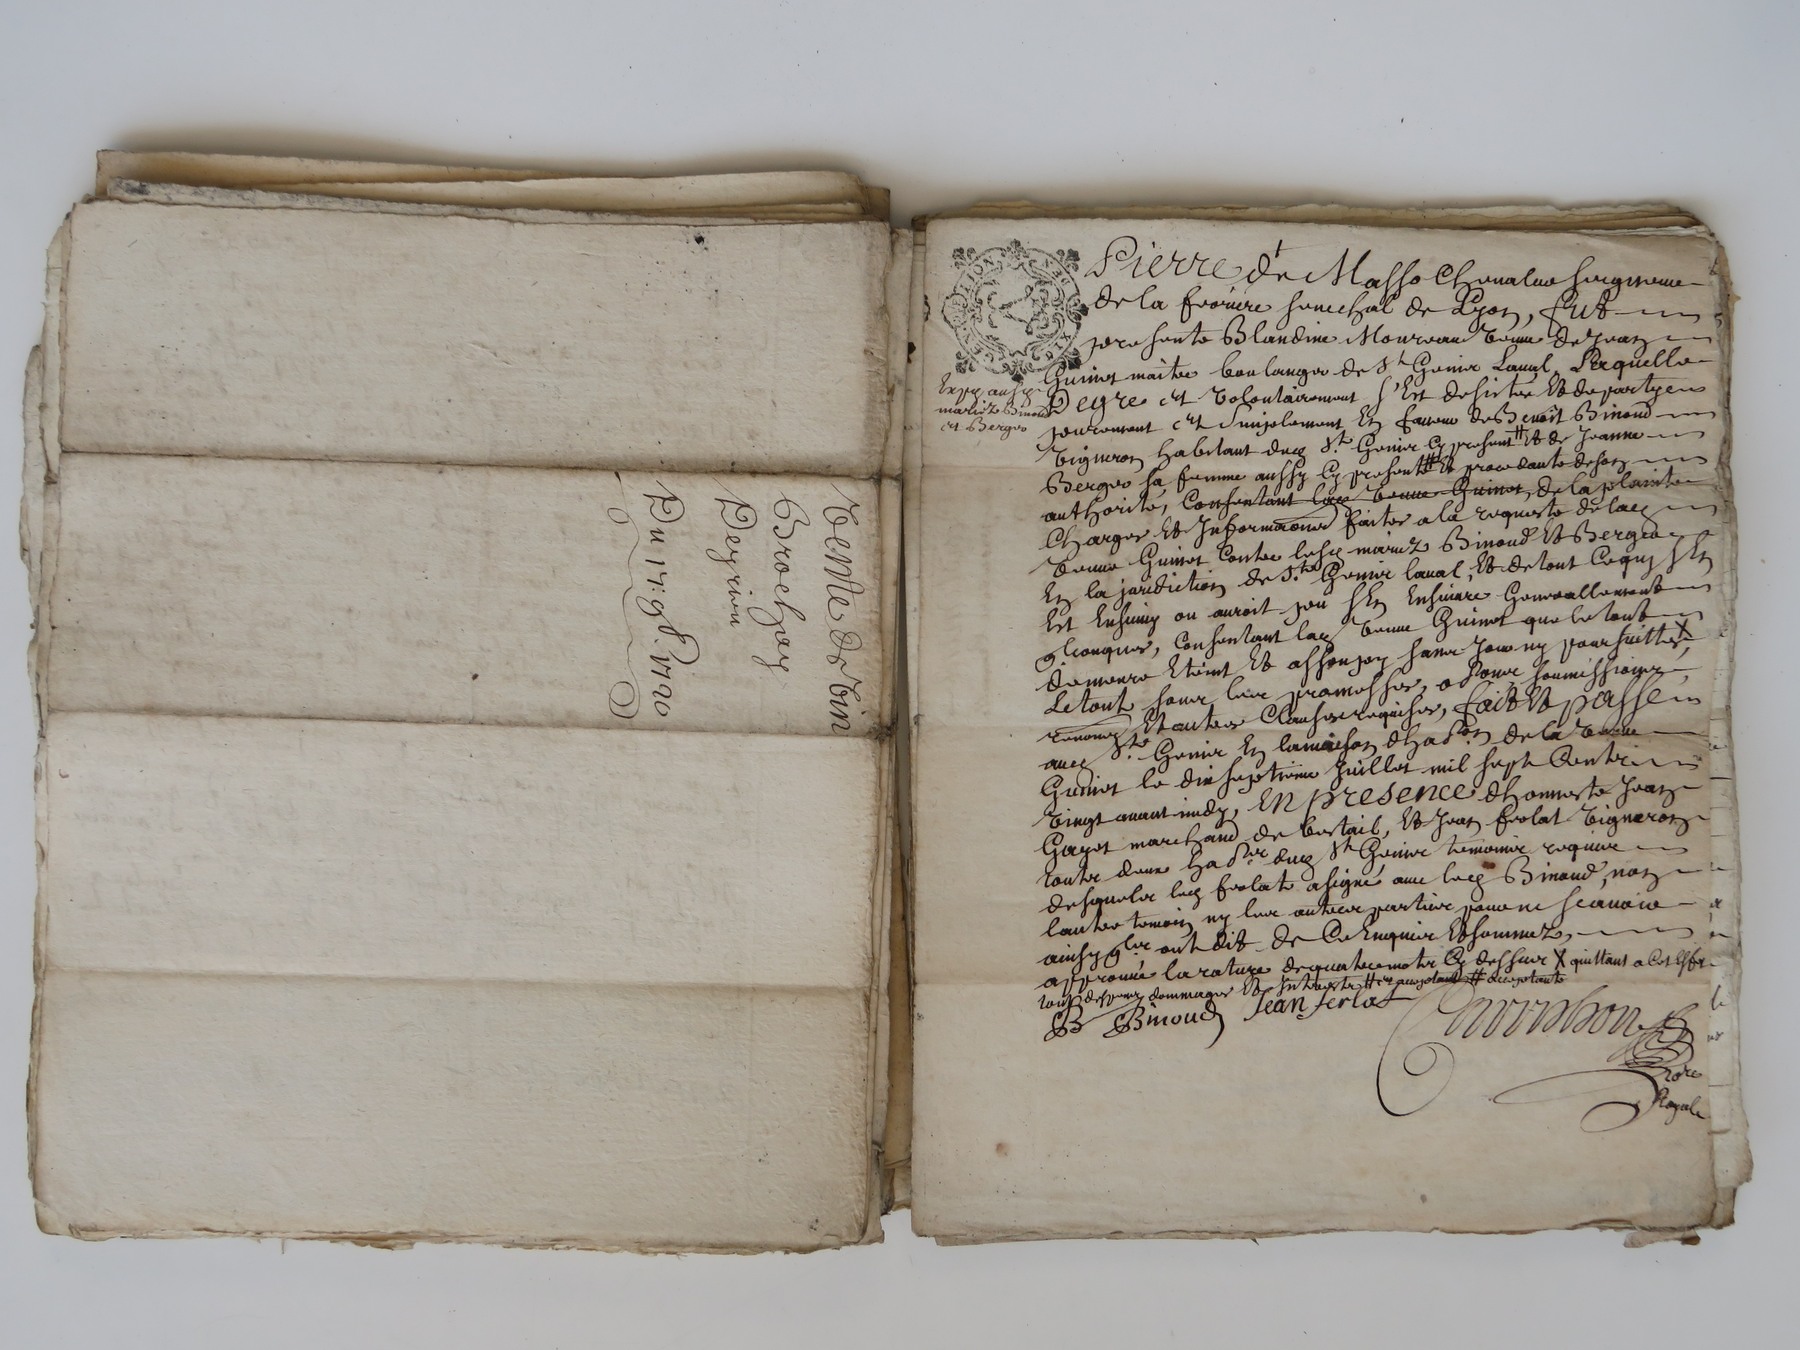 Vente de vin
Brochay
Deyrieu
Du 17: 9b. 1720
Pierre de Masso Chevalier seigneur
de la ferriere senechal de Lyon, fut
presente Blandine Moureau veuve de Jean
Guinet maitre boulanger de St Genis Laval, Laquelle
Expp. aux sz
mariez Binoud
et Berger
De gre et volontairement s'Est desistée Et departye
purement Et Simplement En faveur de Benoit Binoud
vigneron habitant dud St. Genis Cy present # Et de Jeanne
Berger sa femme aussy Cy presente # Et procedante de son
authorité, Consentant lad veuve Guinet, de la plainte
Charges Et Informaons faites a la requeste de lad
veuve Guinet Contre lesd mariez Binoud Et Berger
En la juridiction de St. Genis laval, Et de tout Ce qui s'En
Est Ensuivy ou auroit pu s'En Ensuivre Generallement
qlconques, Consentant lad veuve Guinet que le tout
demeure Eteint Et assoupy sans pour suittes X,
Le tout sous les promesses, soumissions,
renonçons Et autres Clauses requises, fait Et passé
aud St. Genis En la maison d'habon de la veuve
Guinet le dix septieme Juillet mil sept Cents
vingt avant midy, En presence d'honneste Jean
Gayet marchand de bestail, Et Jean ferlat vigneron
touts deux habts dud St Genis temoins requis
desquels led ferlat a signé avec led Binoud, non
l'autre temoin ny les autres parties pour ne scavoir
ainsy qls ont dit de Ce Enquis Et sommez,
approuvé la rature de quatre mots Cy dessus X quittant a Cet Effet
tous depens dommages Et Interests # acceptant # acceptante
B Binoud Jean ferlat
Nore
Royal